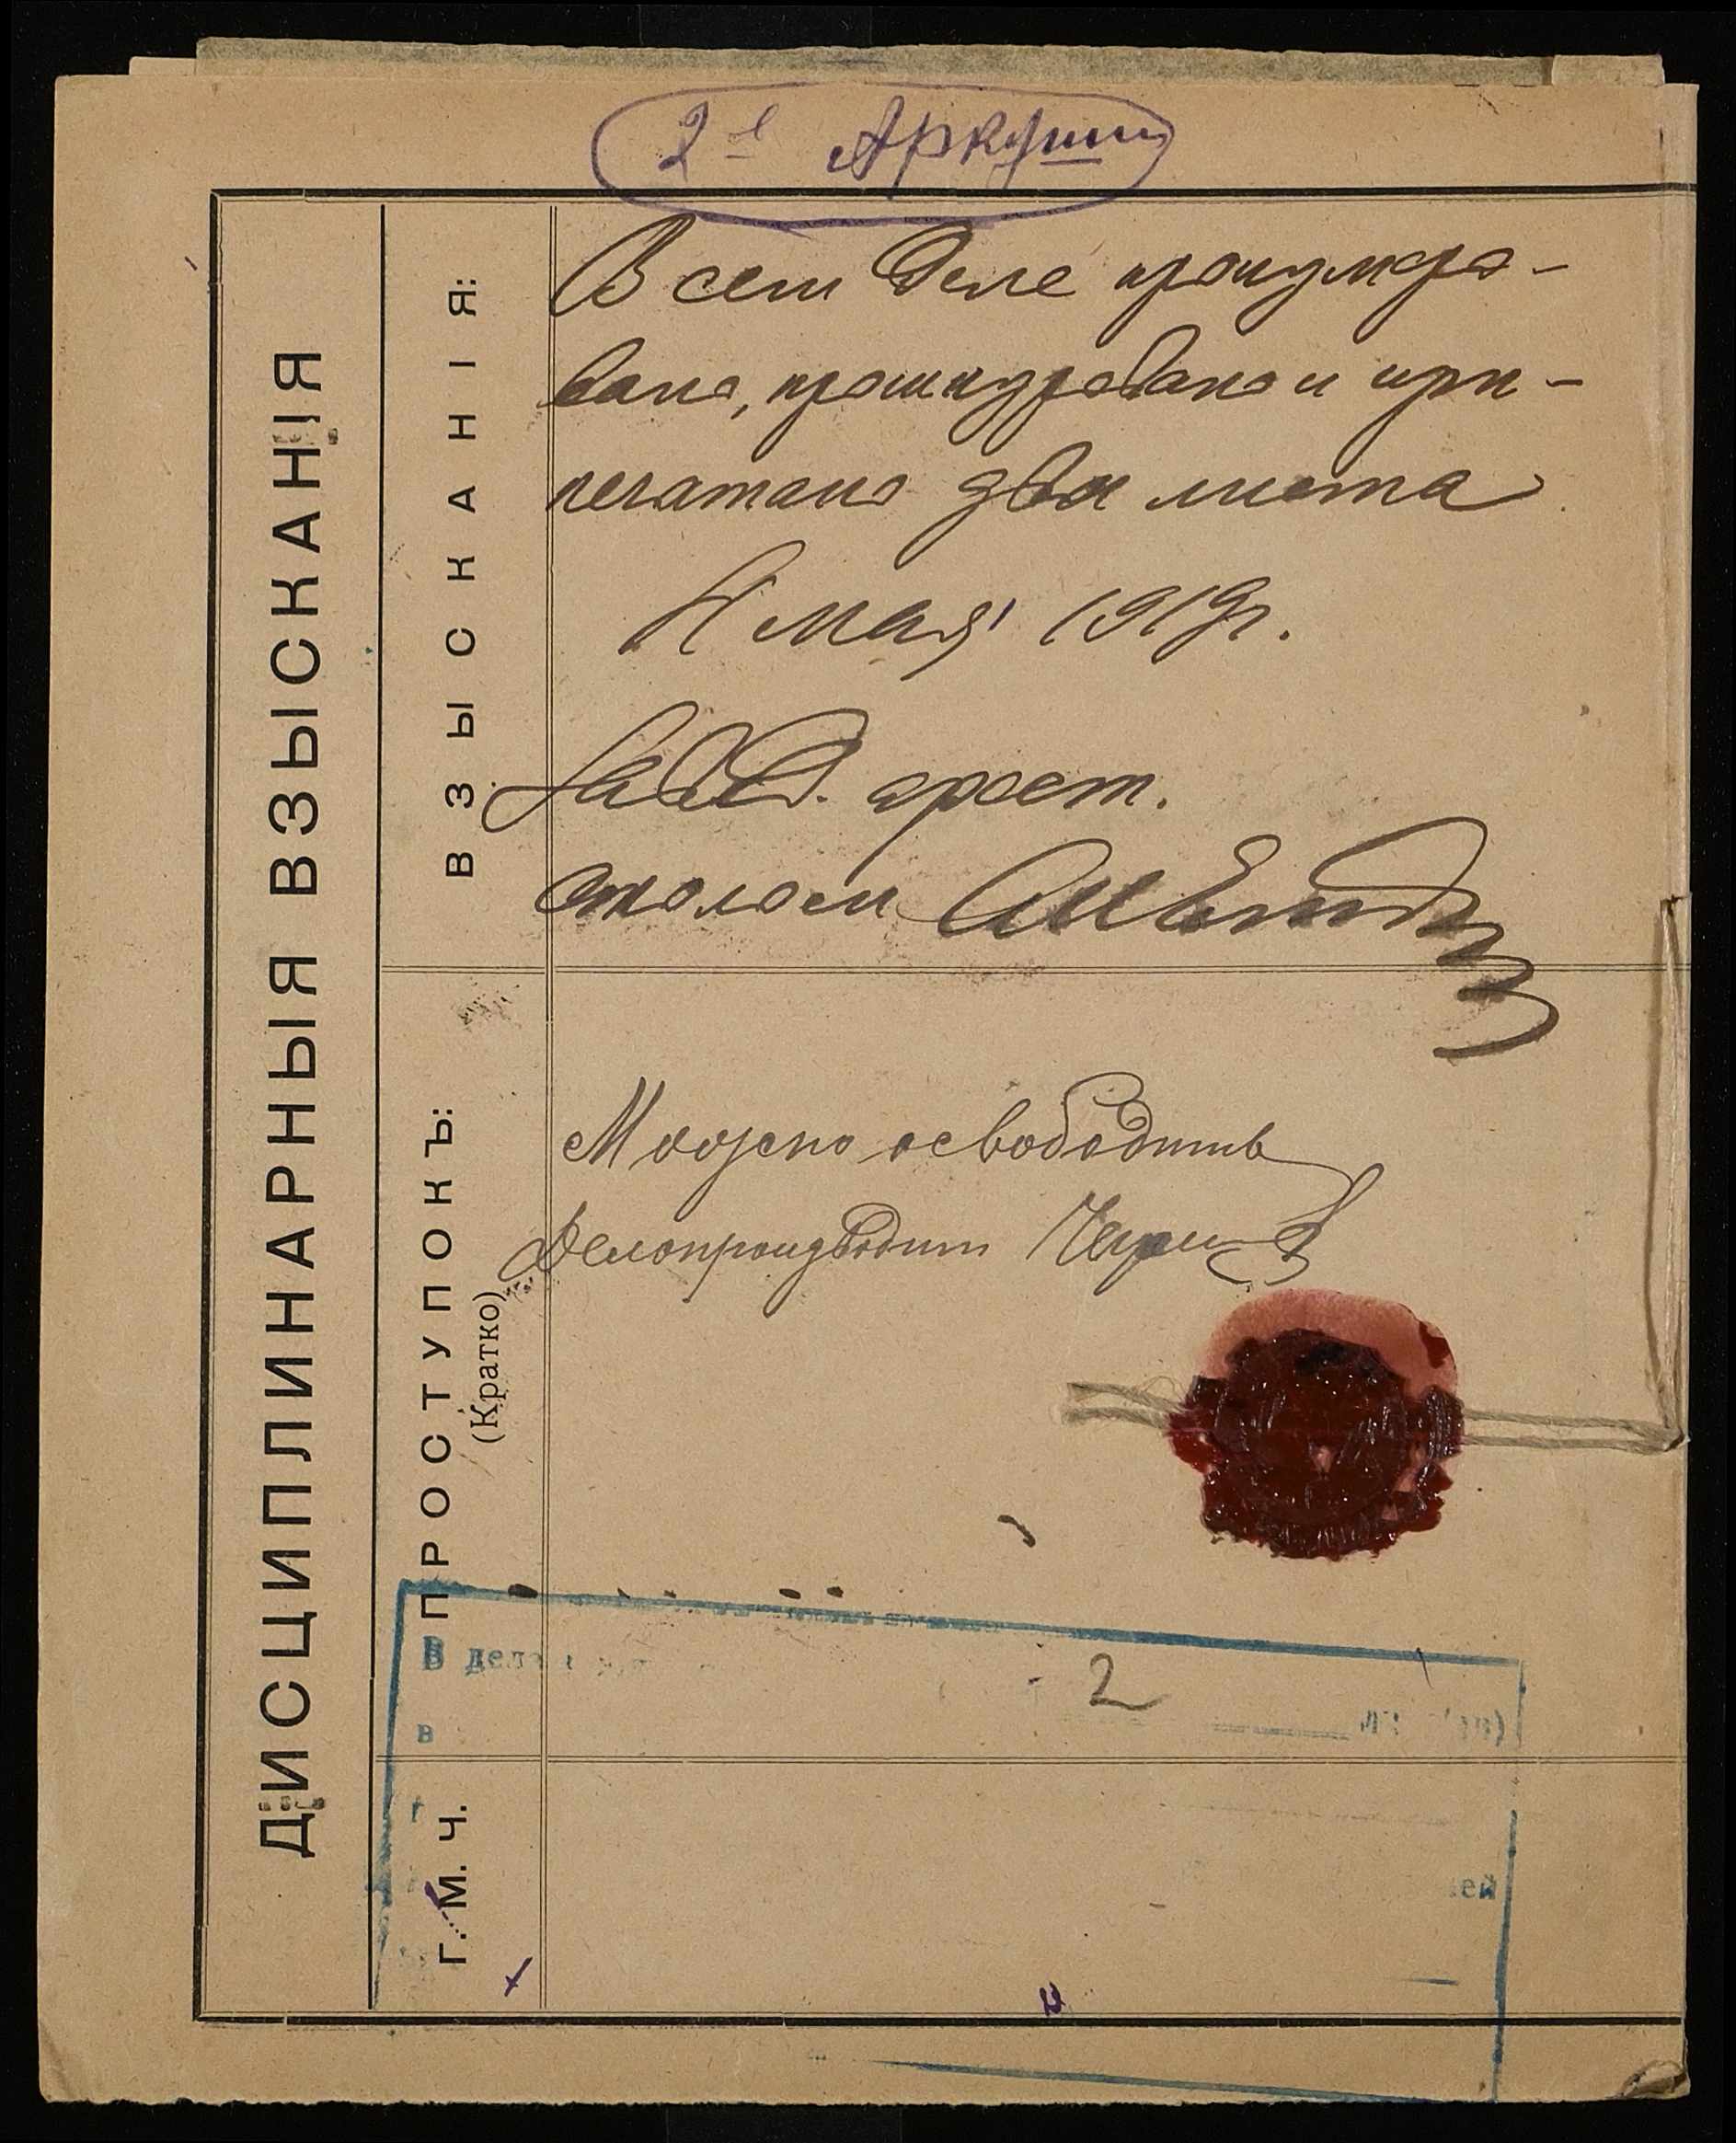 2 е Аркуш
ДИСЦИПЛИНАРНЫЯ ВЗЫСКАНІЯ
ВЗЫСКАНІЯ:
В сем деле пронумеро-
вано, прошнуровано и при-
печатано два листа
мая 1919г.
Завед. арест.
столом
ПРОСТУПОКЪ:
(Кратко)
Можно освободить
Делопроизводит
В дел
2
в
Г. М. Ч.
ей